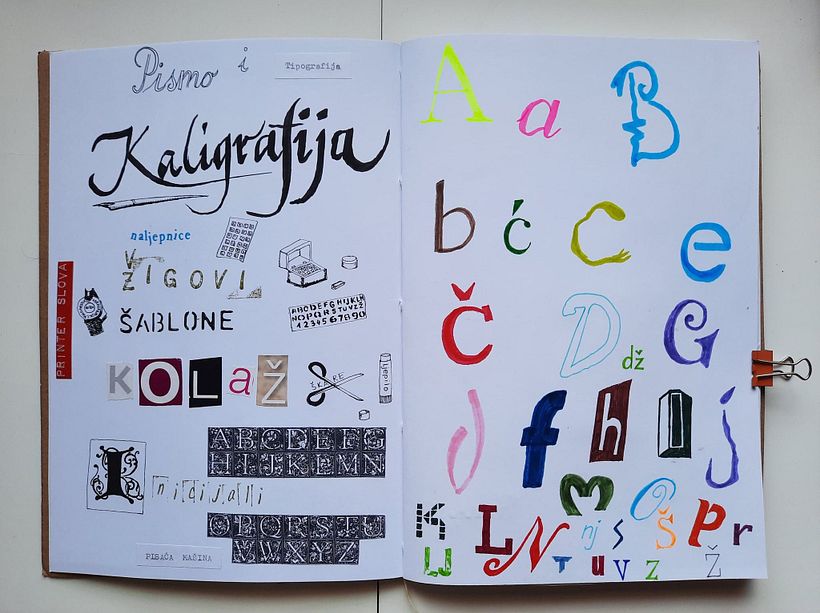 Pismo i Tipografija
Kaligrafija
naljepnice
ŽIGOVI
PRINTER SLOVA
ŠABLONE
ABCDEFGHIJKLM
NOPQRSTUVZŽ
1234567890
KOLaŽ
ŠKARE
Ljepilo
Inicijali
ABCDEFG
HIJKLMN
OPQRSTU
VWXYZ
PISAĆA MAŠINA
A a B
b ć C e
Č D dž G
d f h I j
K M O
LJ L N nj S Š P r
T u V z Ž